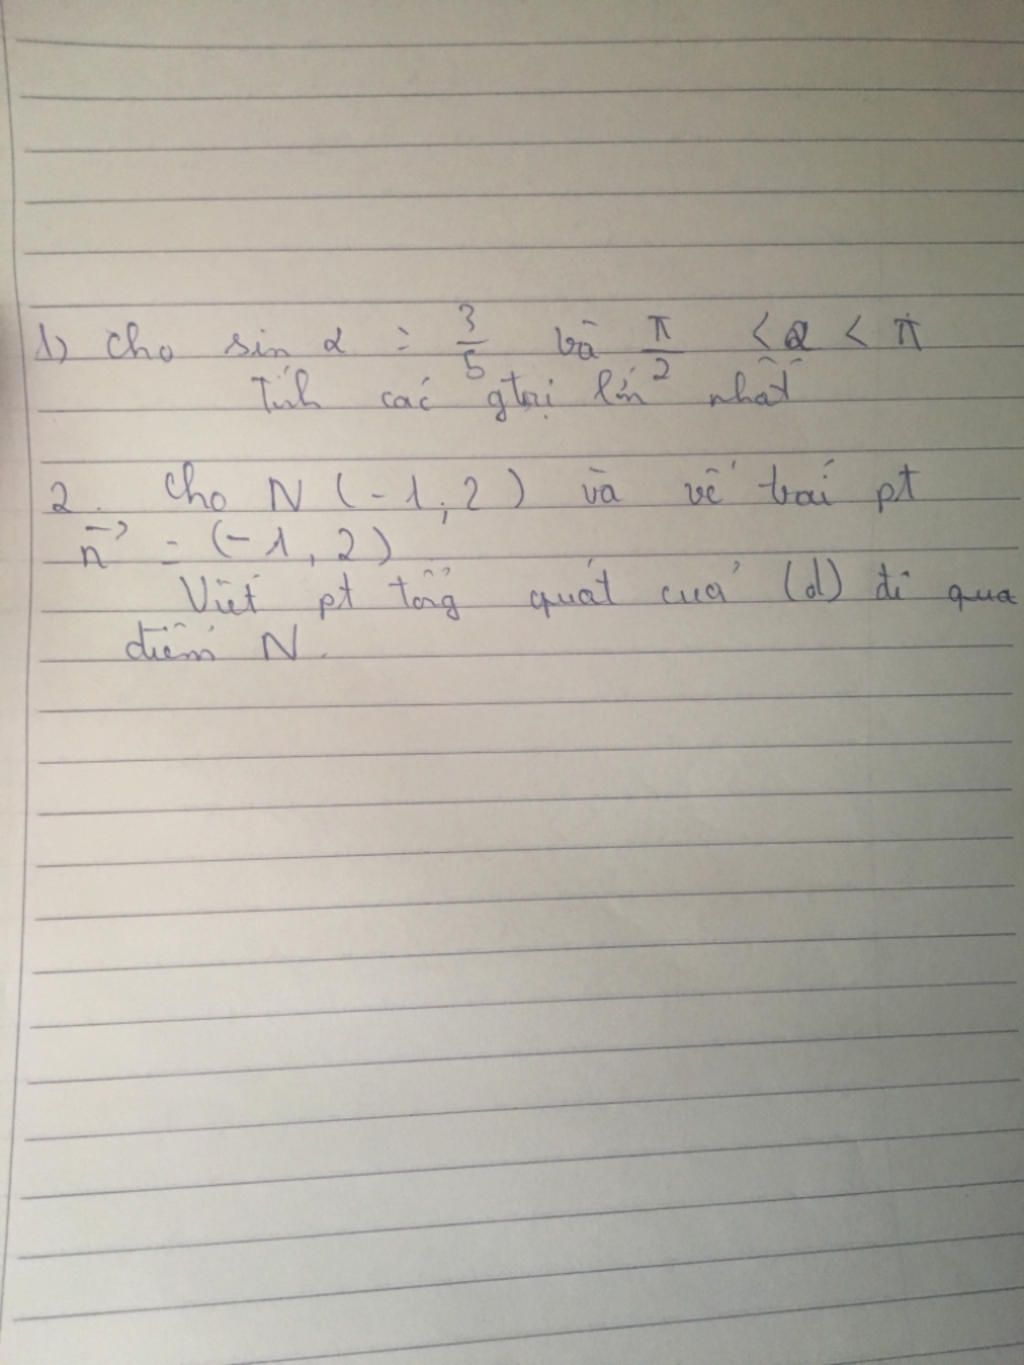 1) Cho sin α = 3/5 và π/2 < α < π
Tính các gtrị lớn nhất
2. Cho N (-1; 2) và vế trái pt
n⃗ = (-1, 2)
Viết pt tổng quát của (d) đi qua
điểm N.